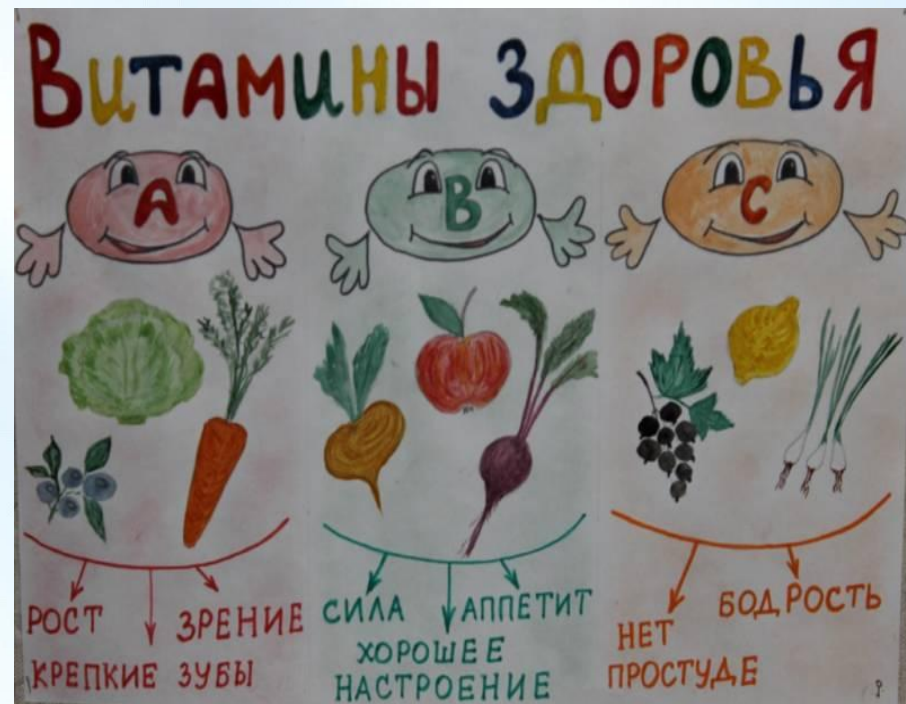 ВИТАМИНЫ ЗДОРОВЬЯ
А
В
С
РОСТ
ЗРЕНИЕ
КРЕПКИЕ ЗУБЫ
СИЛА
АППЕТИТ
ХОРОШЕЕ
НАСТРОЕНИЕ
БОДРОСТЬ
НЕТ
ПРОСТУДЕ